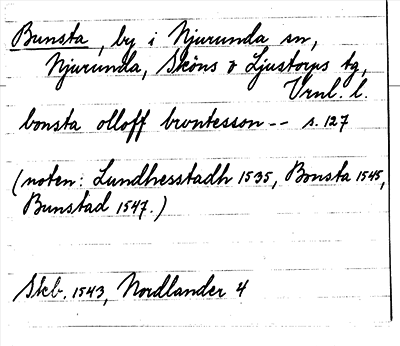 Bunsta, by i Njurunda sn,
Njurunda, Sköns o Ljustorps tg,
Vrnl. l.
bonsta olloff brontesson -- s. 127
(noten: Lundhesstadh 1535, Bonsta 1545,
Bunstad 1547.)
Skb. 1543, Nordlander 4